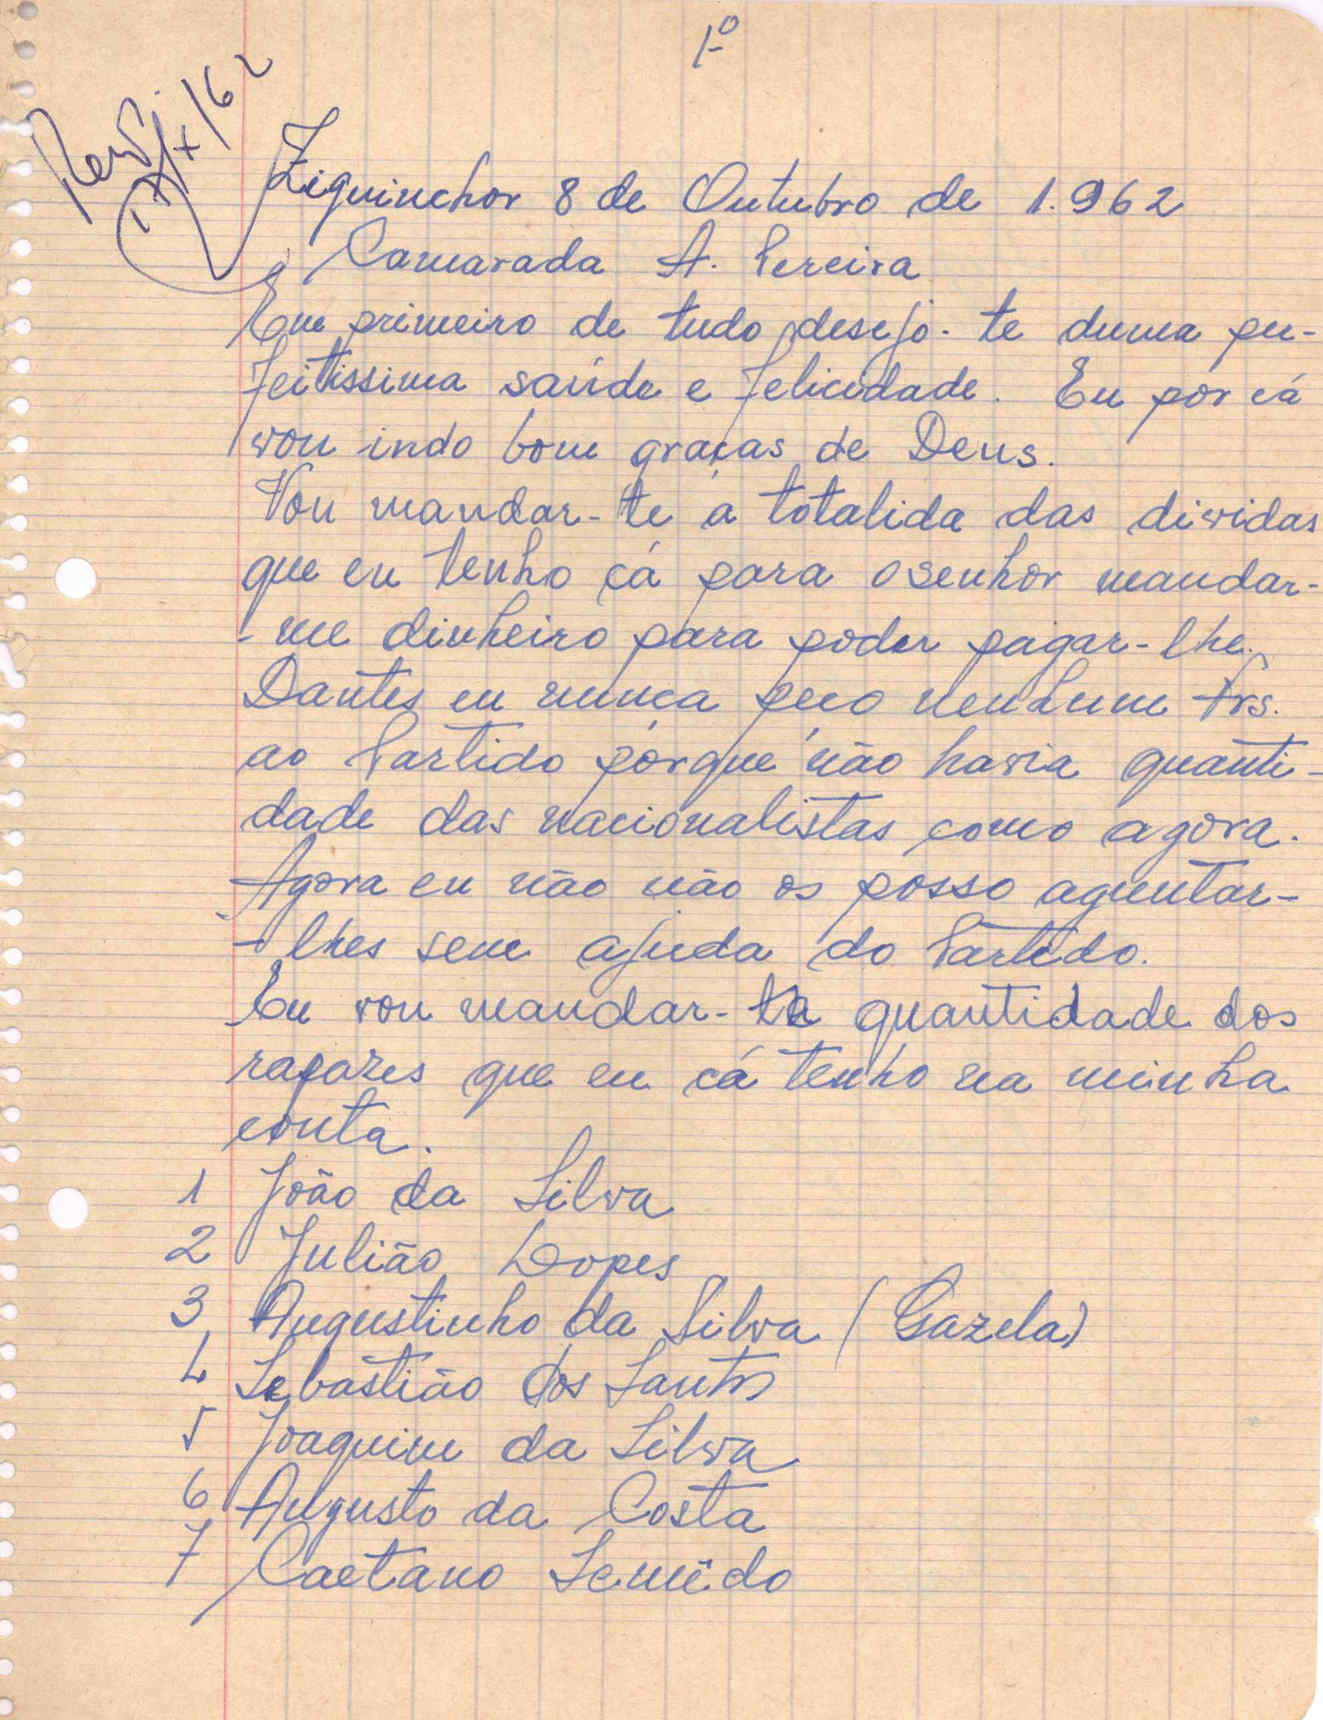 1º
17/X/62
Ziguinchor 8 de Outubro de 1.962
Camarada A. Pereira
Em primeiro de tudo desejo-te duma per-
feitissima saúde e felicidade. Eu por cá
vou indo bom graças de Deus.
Vou mandar-te a totalida das dividas
que eu tenho cá para o senhor mandar-
-me dinheiro para poder pagar-lhe.
Dantes eu nunca peço nenhum frs.
ao Partido porque não havia quanti-
dade das nacionalistas como agora.
Agora eu não não os posso aguentar-
-lhes sem ajuda do Partido.
Eu vou mandar-te quantidade dos
raçazes que eu cá tenho na minha
conta.
1 João da Silva
2 Julião Lopes
3 Augustinho da Silva (Gazela)
4 Sebastião dos Santos
5 Joaquim da Silva
6 Augusto da Costa
7 Caetano Semedo